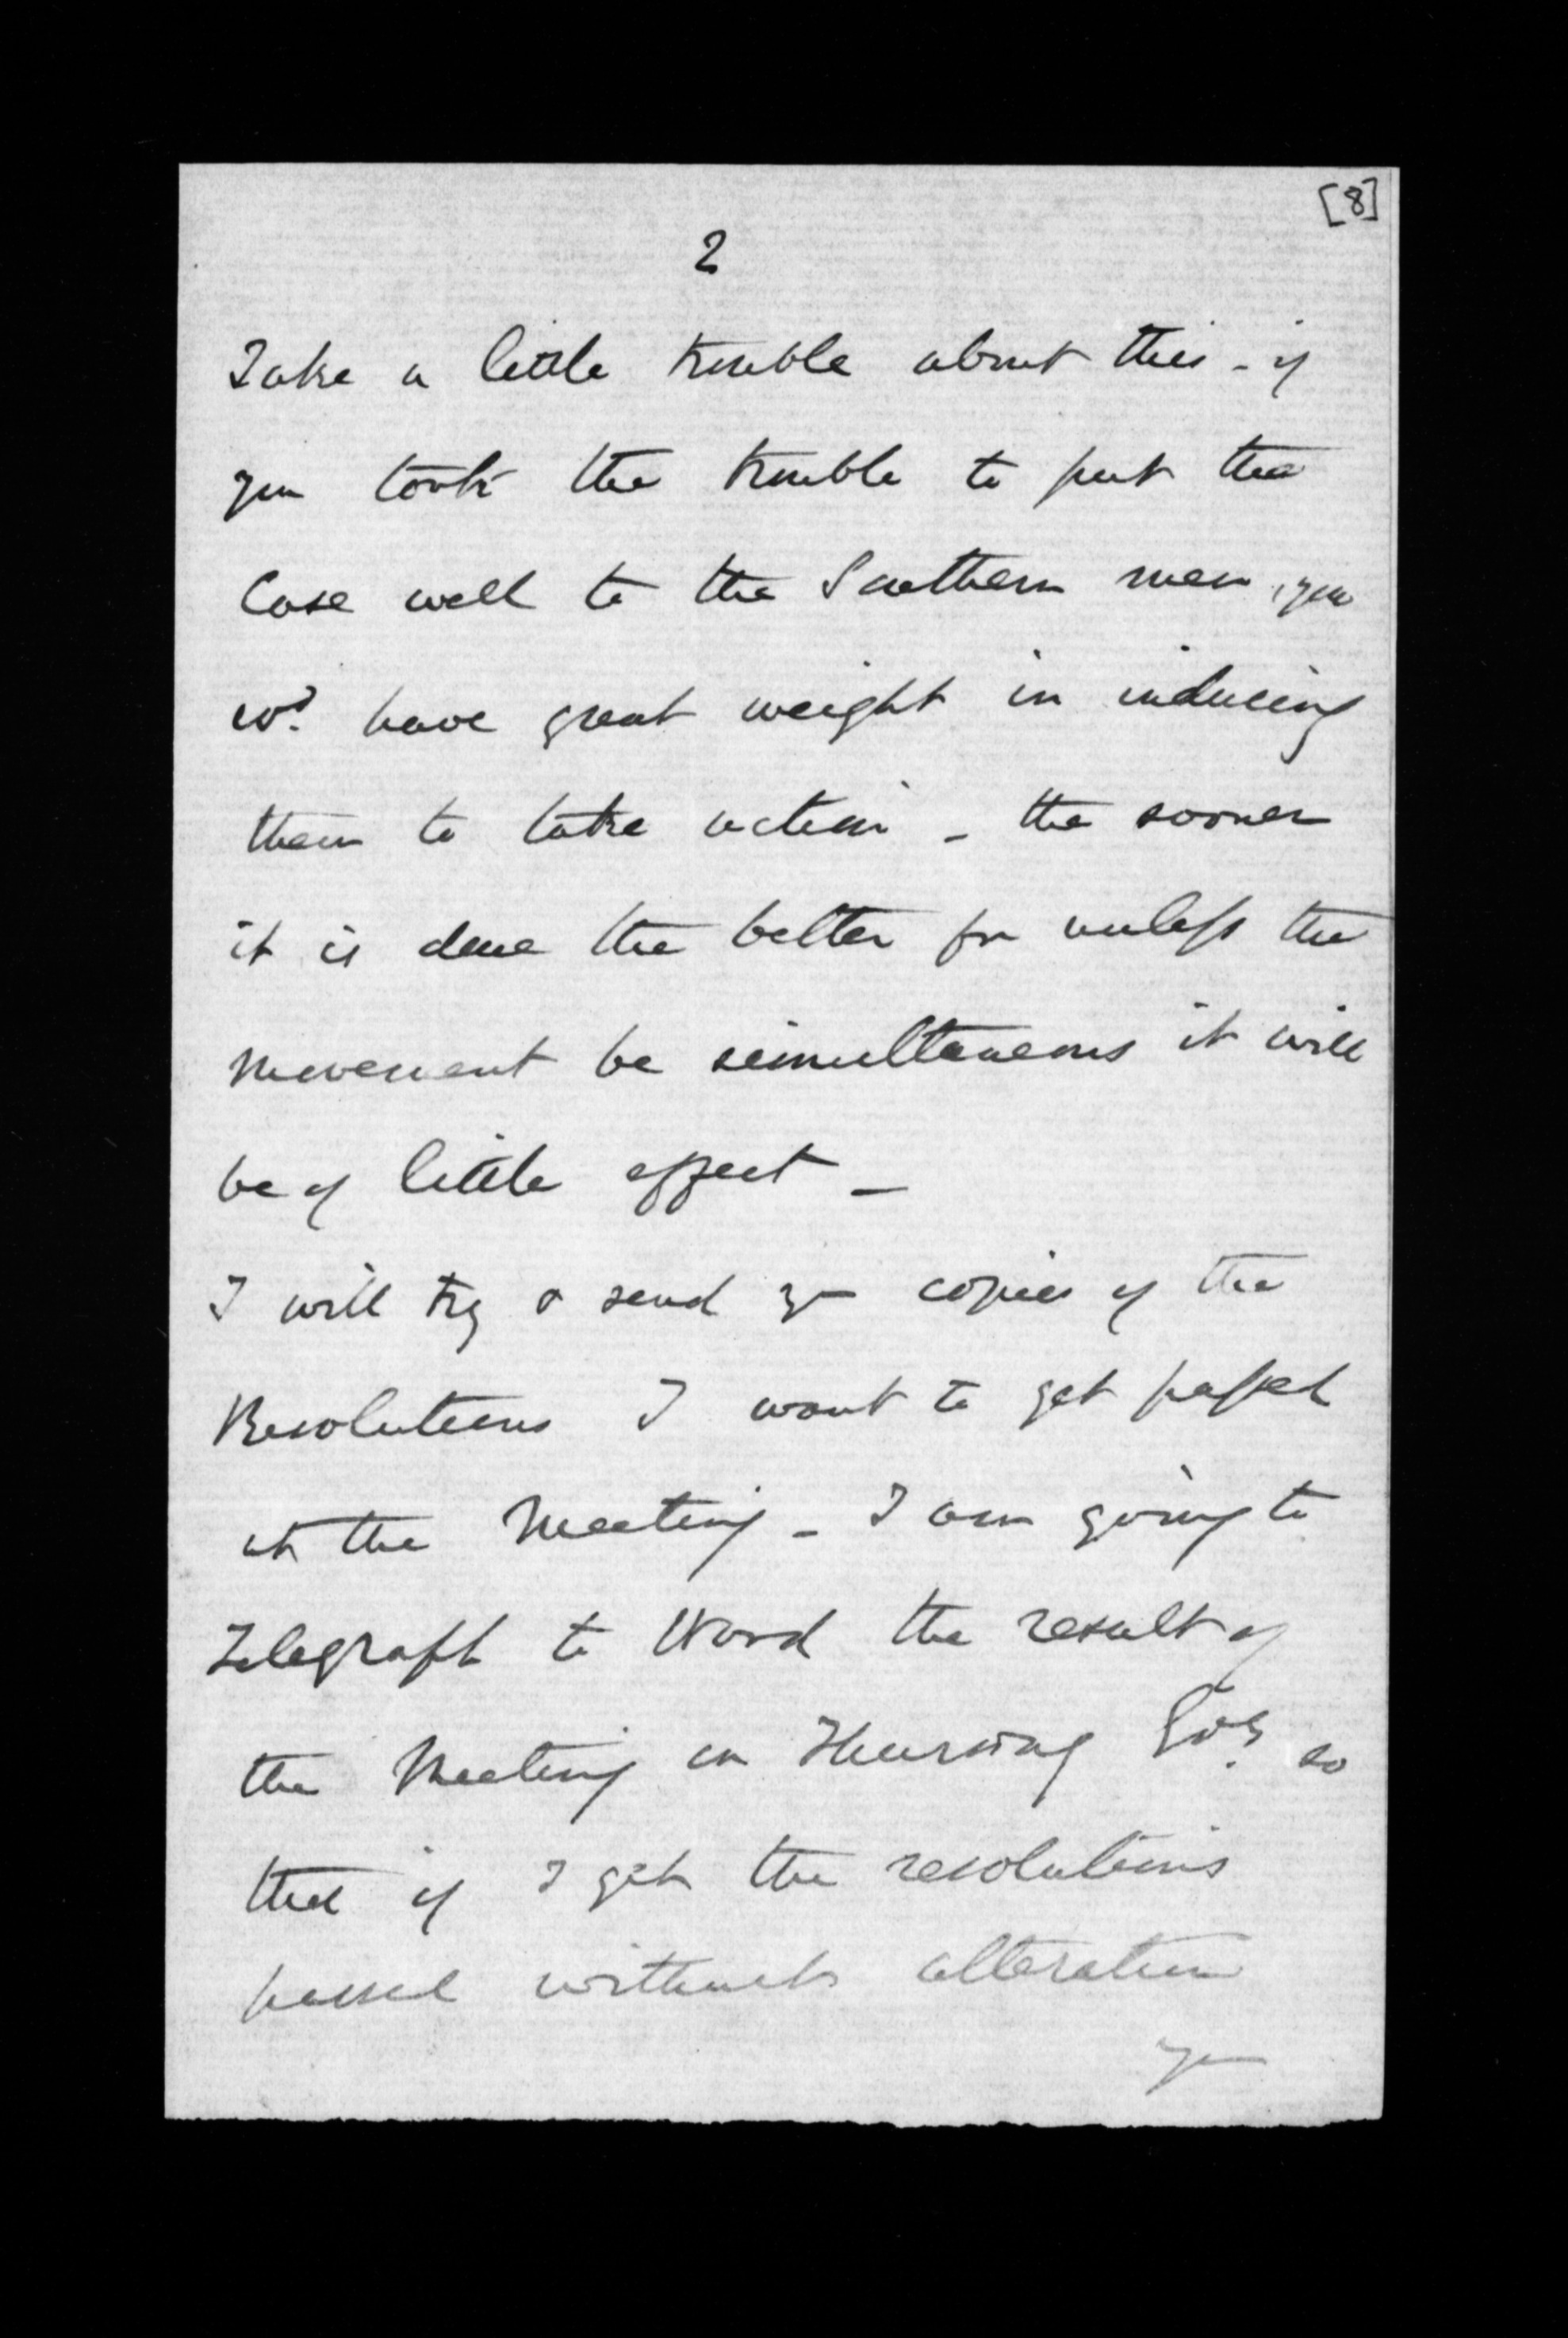 [8]
2
Take a little trouble about this - if
you took the trouble to put the
Case well to the Southern men, you
wd. have great weight in inducing
them to take action - the sooner
it is done the better for unless the
movement be simultaneous it will
be of little effect -
I will try & send you copies of the
Resolutions I want to get passed
at the Meeting - I am going to
Telegraph to Ward the result of
the Meeting on Thursday so
that if I get the resolutions
passed without alteration
you